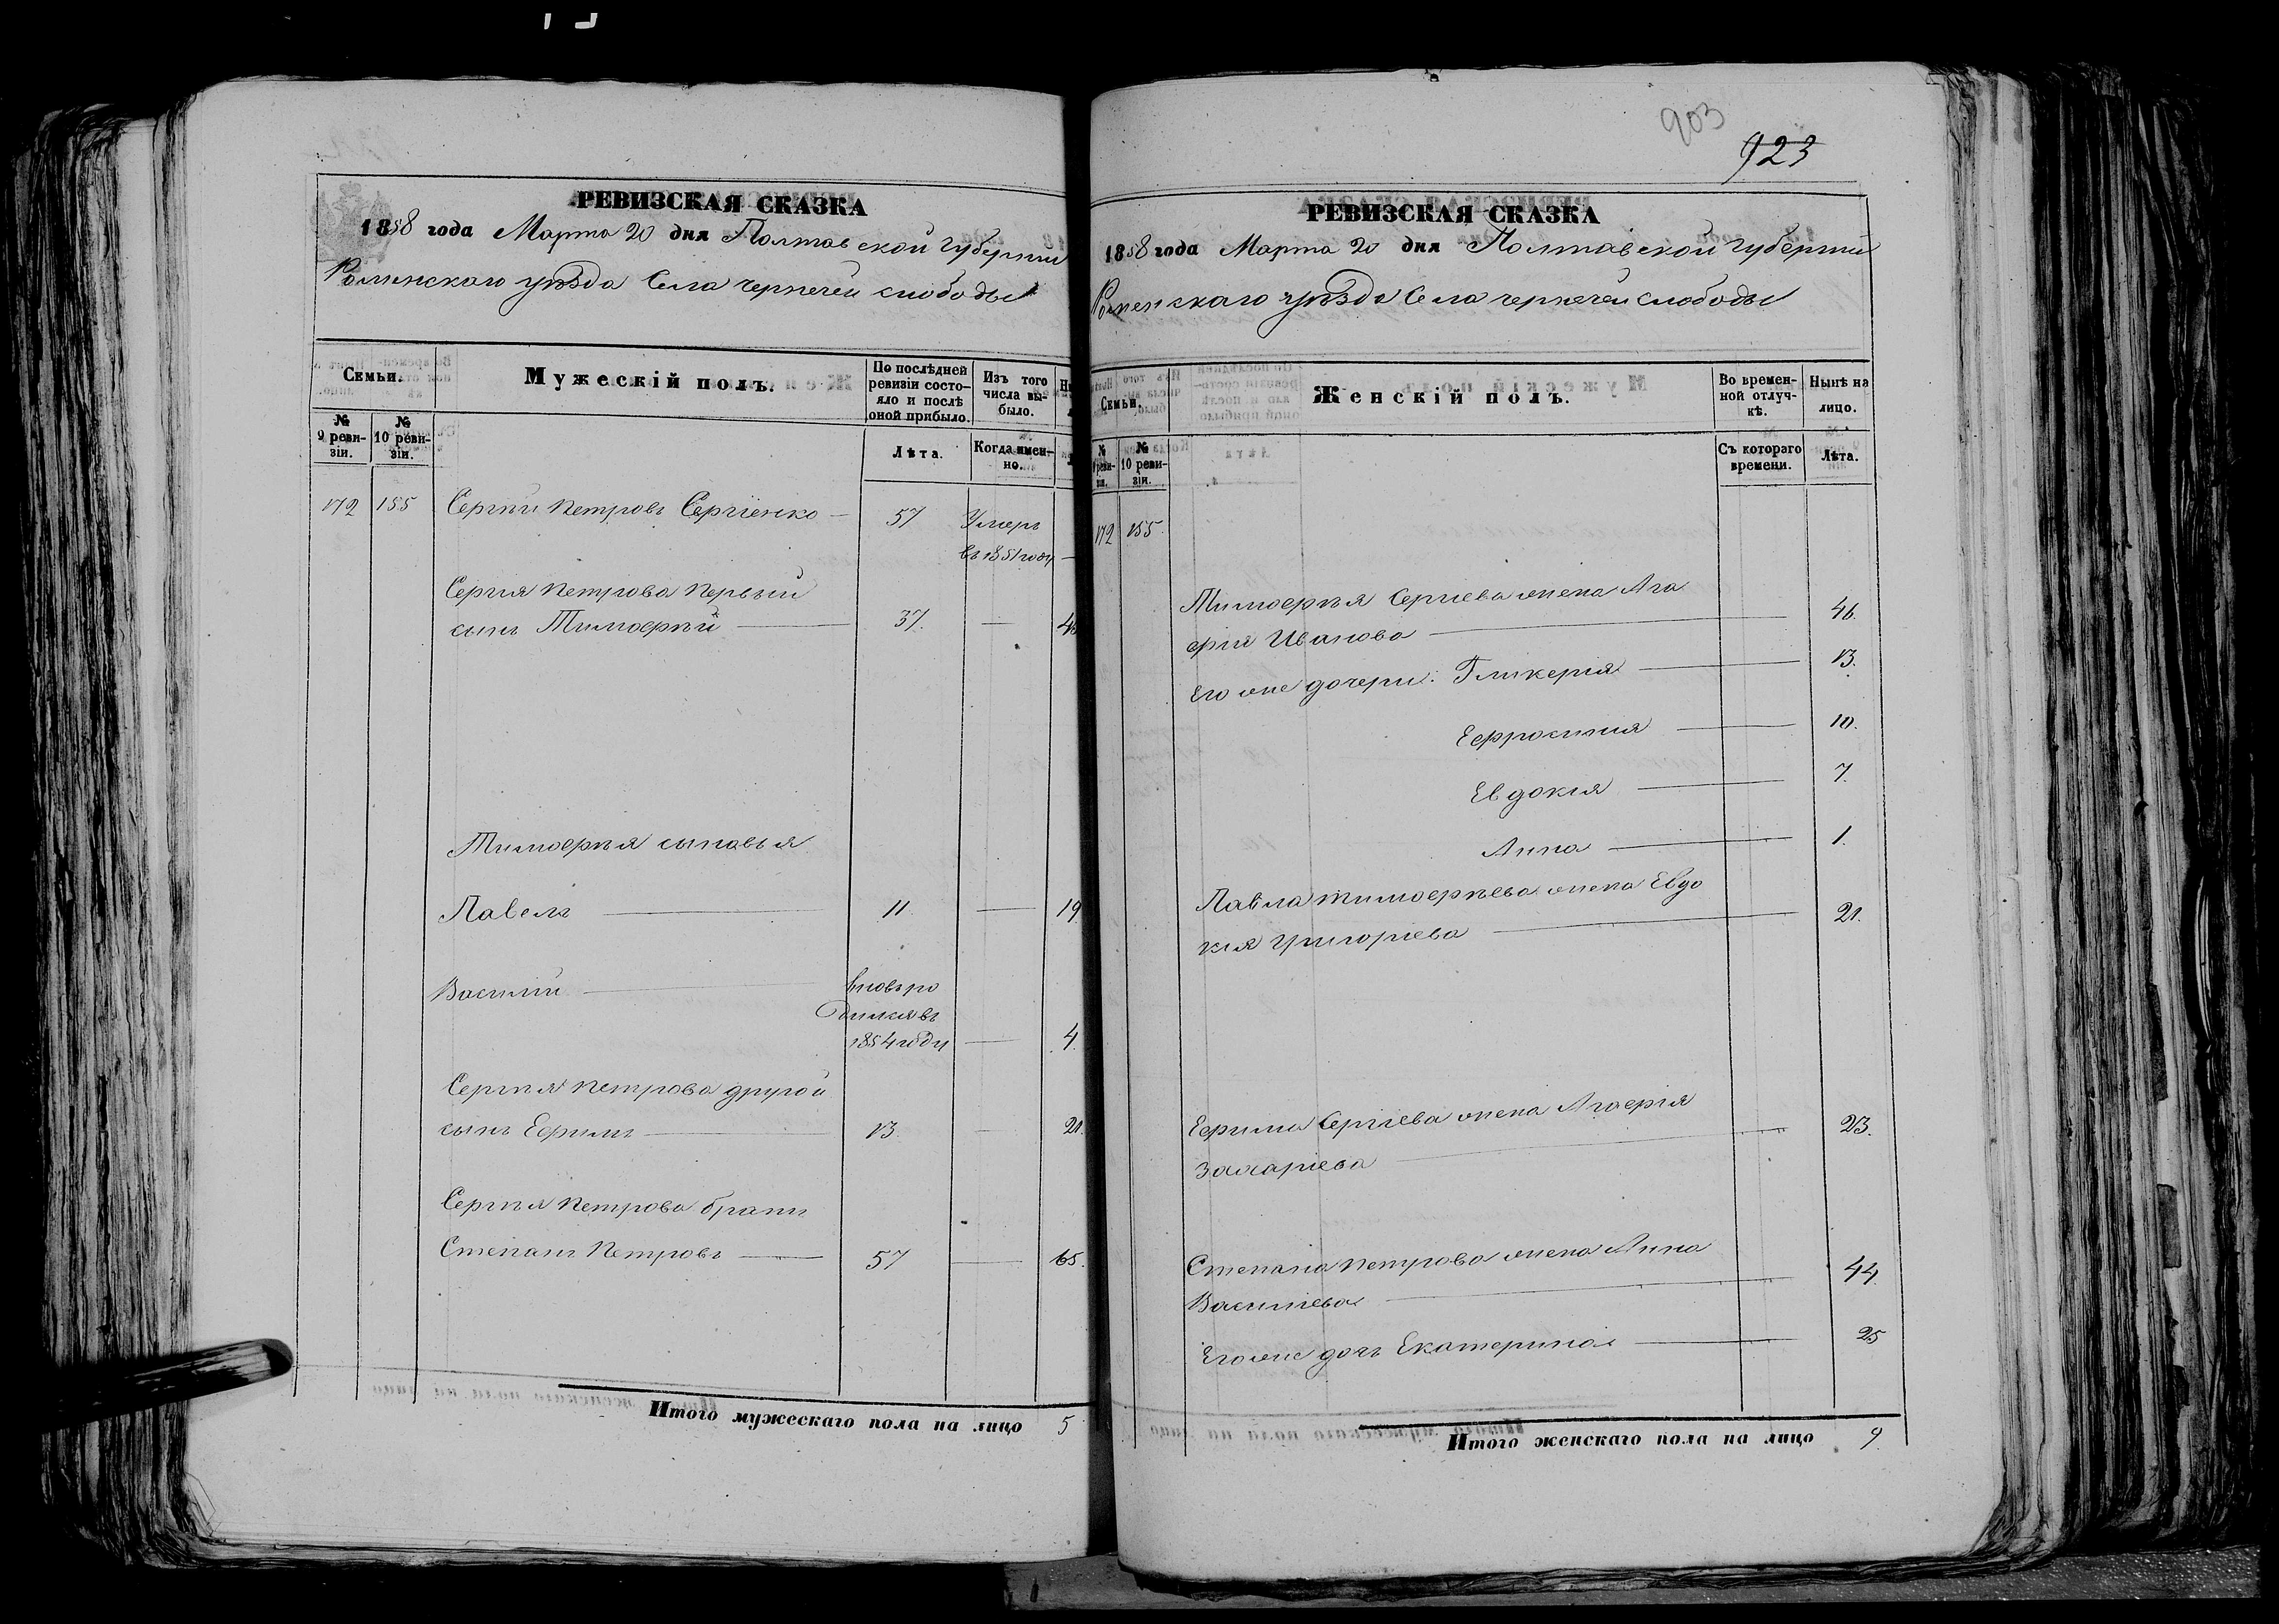 РЕВИЗСКАЯ СКАЗКА
1858 года Марта 20 дня Полтавской губернии
Роменскаго уѣзда Села чернечей слободы
Семьи.
Мужескій полъ.
По послѣдней ревизіи состояло и послѣ оной прибыло.
Изъ того числа выбыло.
№ 9 ревизіи.
№ 10 ревизіи.
Лѣта.
Когда именно.
172 155 Сергѣй Петровъ Сергіенко — 57 Умеръ
въ 1851 году —
Сергія Петрова Первый
сынъ Тимоѳѣй — 37. —
Тимоѳѣя сыновья
Павелъ — 11 — 19
Василій — вновь ро
дился въ
1854 году — 4.
Сергѣя Петрова другой
сынъ Ефимъ — 13. — 21.
Сергѣя Петрова братъ
Степанъ Петровъ — 57 — 65.
Итого мужескаго пола на лицо 5
903
923
РЕВИЗСКАЯ СКАЗКА
1858 года Марта 20 дня Полтавской губерніи
Роменскаго уѣзда Села чернечей слободы
Семьи.
Женскій полъ.
Во временной отлучкѣ.
Нынѣ на лицо.
№ 9 ревизіи.
№ 10 ревизіи.
Съ котораго времени.
Лѣта.
172 155.
Тимоѳѣя Сергіева жена Ага
фія Иванова — 46.
Его же дочери: Гликерія — 13.
Ефросинія — 10.
Евдокія — 7.
Анна — 1.
Павла тимоѳѣева жена Евдо
кія Григоріева — 21.
Ефима Сергіева жена Агафія
Захаріева — 23.
Степана Петрова жена Анна
Василіева — 44.
Его же дочь Екатерина — 25
Итого женскаго пола на лицо 9.